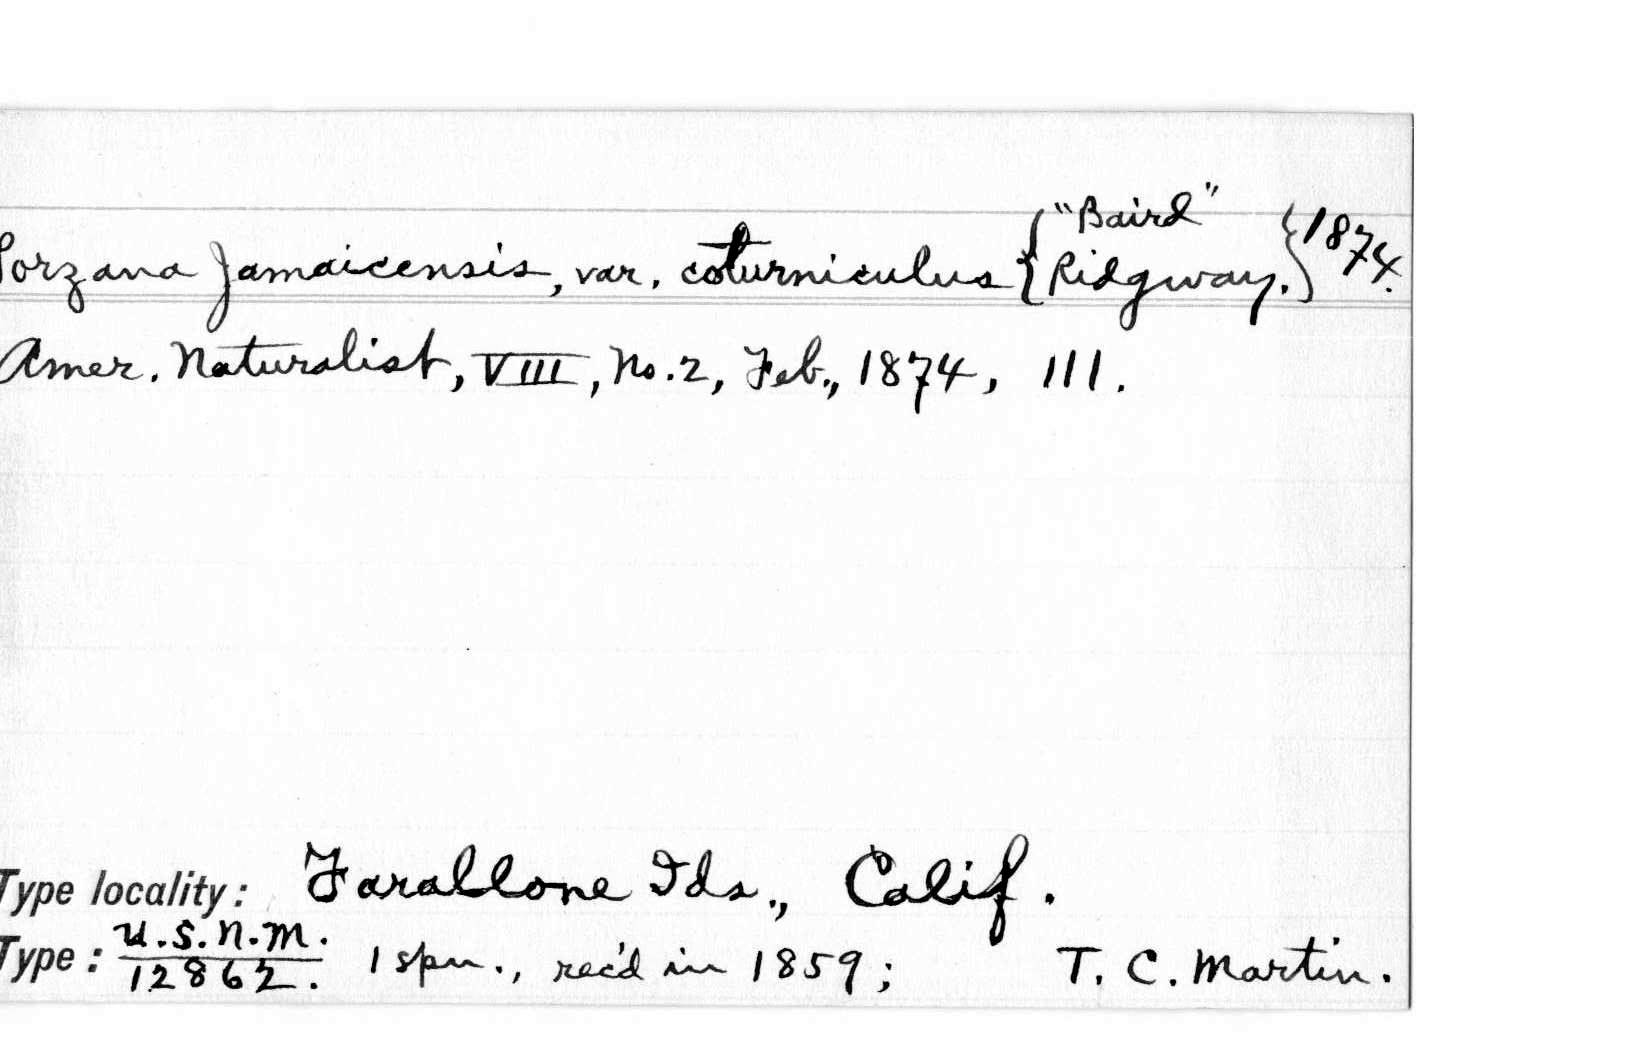 Porzana Jamaicensis, var. coturniculus { "Baird" Ridgway. } 1874.
Amer. Naturalist, VIII, No. 2, Feb., 1874, 111.
Type locality: Farallone Ids., Calif.
Type: U.S.N.M. 12862. 1 spm., rec'd in 1859; T. C. Martin.